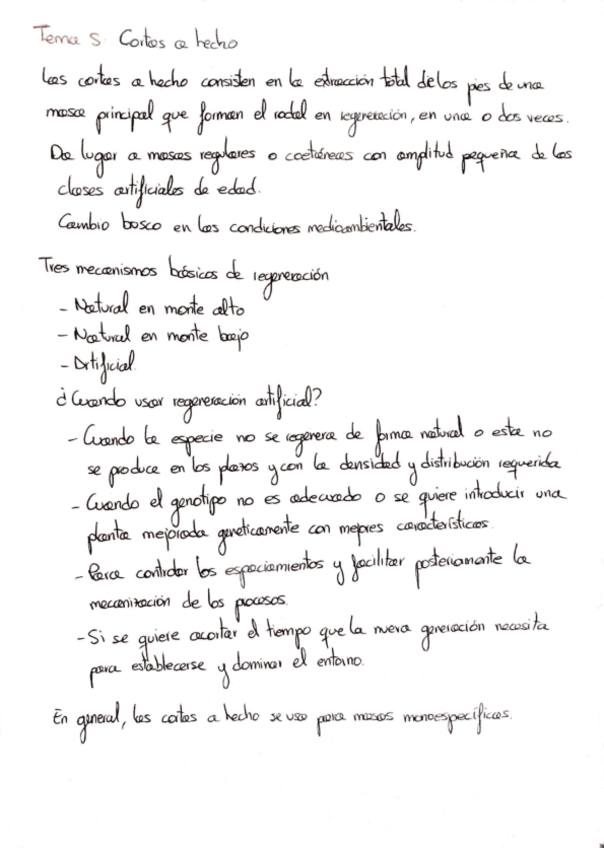 Tema 5. Cortas a hecho
Las cortas a hecho consisten en la extracción total de los pies de una
masa principal que forman el rodal en regeneración, en una o dos veces.
Da lugar a masas regulares o coetáneas con amplitud pequeña de las
clases artificiales de edad.
Cambio bosco en las condiciones medioambientales.
Tres mecanismos básicos de regeneración
- Natural en monte alto
- Natural en monte bajo
- Artificial.
¿Cuando usar regeneración artificial?
- Cuando la especie no se regenera de forma natural o esta no
se produce en los plazos y con la densidad y distribución requerida
- Cuando el genotipo no es adecuado o se quiere introducir una
planta mejorada genéticamente con mejores características.
- Para controlar los espaciamientos y facilitar posteriormente la
mecanización de los procesos.
- Si se quiere acortar el tiempo que la nueva generación necesita
para establecerse y dominar el entorno.
En general, las cortas a hecho se usa para masas monoespecíficas.